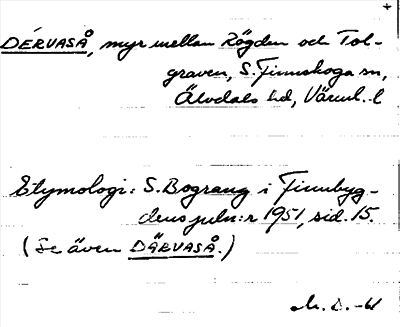 DÉRVASÅ, myr mellan Rögden och Tol-
graven, S. Finnskoga sn,
Älvdals hd, Värml. l
Etymologi: S. Bograng i Finnbyg-
dens juln:r 1951, sid. 15.
(Se även DÄRVASÅ.)